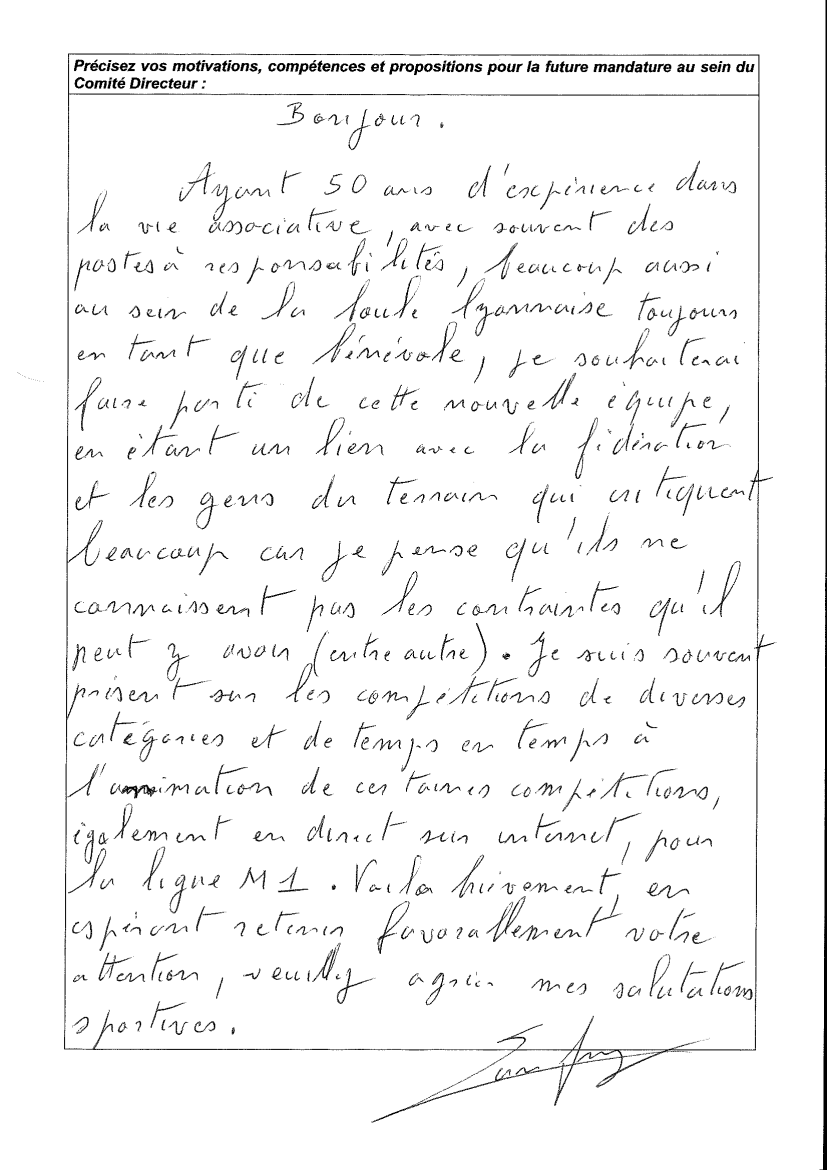 Précisez vos motivations, compétences et propositions pour la future mandature au sein du
Comité Directeur :
Bonjour.
Ayant 50 ans d'expérience dans
la vie associative, avec souvent des
postes à responsabilités, beaucoup aussi
au sein de la boule lyonnaise toujours
en tant que bénévole, je souhaiterai
faire parti de cette nouvelle équipe,
en étant un lien avec la fédération
et les gens du terrain qui critiquent
beaucoup car je pense qu'ils ne
connaissent pas les contraintes qu'il
peut y avoir (entre autre). Je suis souvent
présent sur les compétitions de diverses
catégories et de temps en temps à
l'animation de certaines compétitions,
également en direct sur internet, pour
la ligue M1. Voilà brièvement, en
espérant retenir favorablement votre
attention, veuillez agréer mes salutations
sportives.